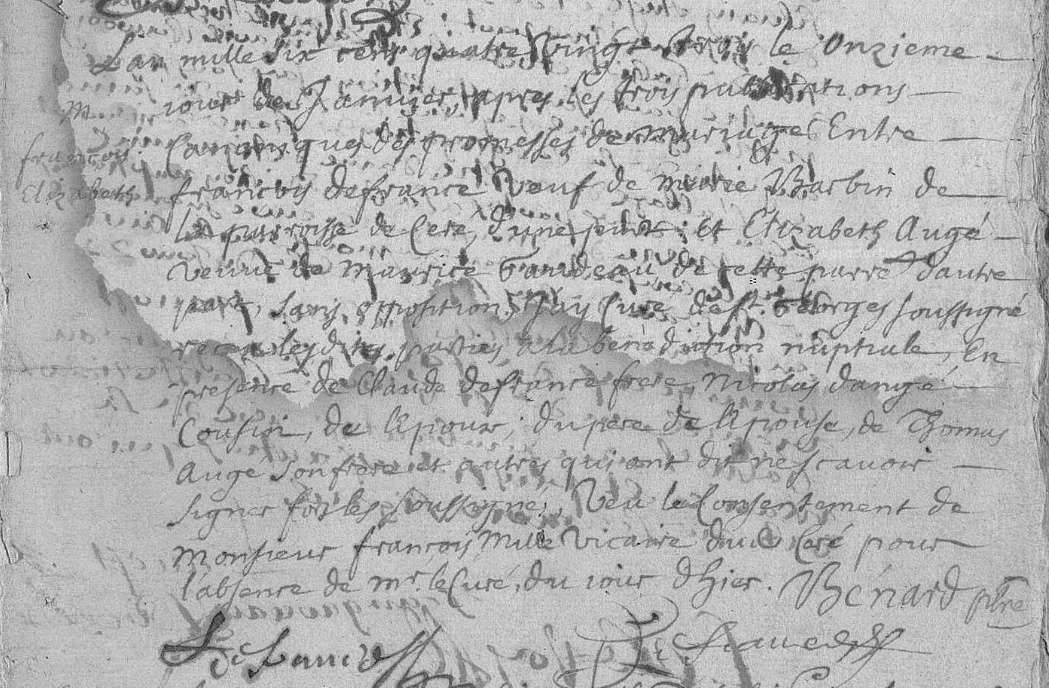 L'an mille six cent quatre vingt trois le Onzieme
M. jour de Janvier, apres les trois publications
Canoniques des promesses de mariages Entre
francois
francois defrance veuf de marie Barbin de
Elizabeth
la parroisse de Ceré, d'une part; et Elizabeth Augé
veuve de Maurice Gaudeau de cette parre d'autre
part, sans opposition, J'ay Curé de st. Georges soussigné
receu lesdites parties a la bénédiction nuptiale, En
présence de Claude defrance frere, Nicolas d'augé
Cousin, de l'Epoux, du pere de l'Epouse, de Thomas
Augé son frere et autres qui ont dit ne scavoir
signer fors les soussigné, Veu le Consentement de
Monsieur francois Mille Vicaire dud Ceré pour
l'absence de mr. le Curé, du jour d'hier. Bénard ptre